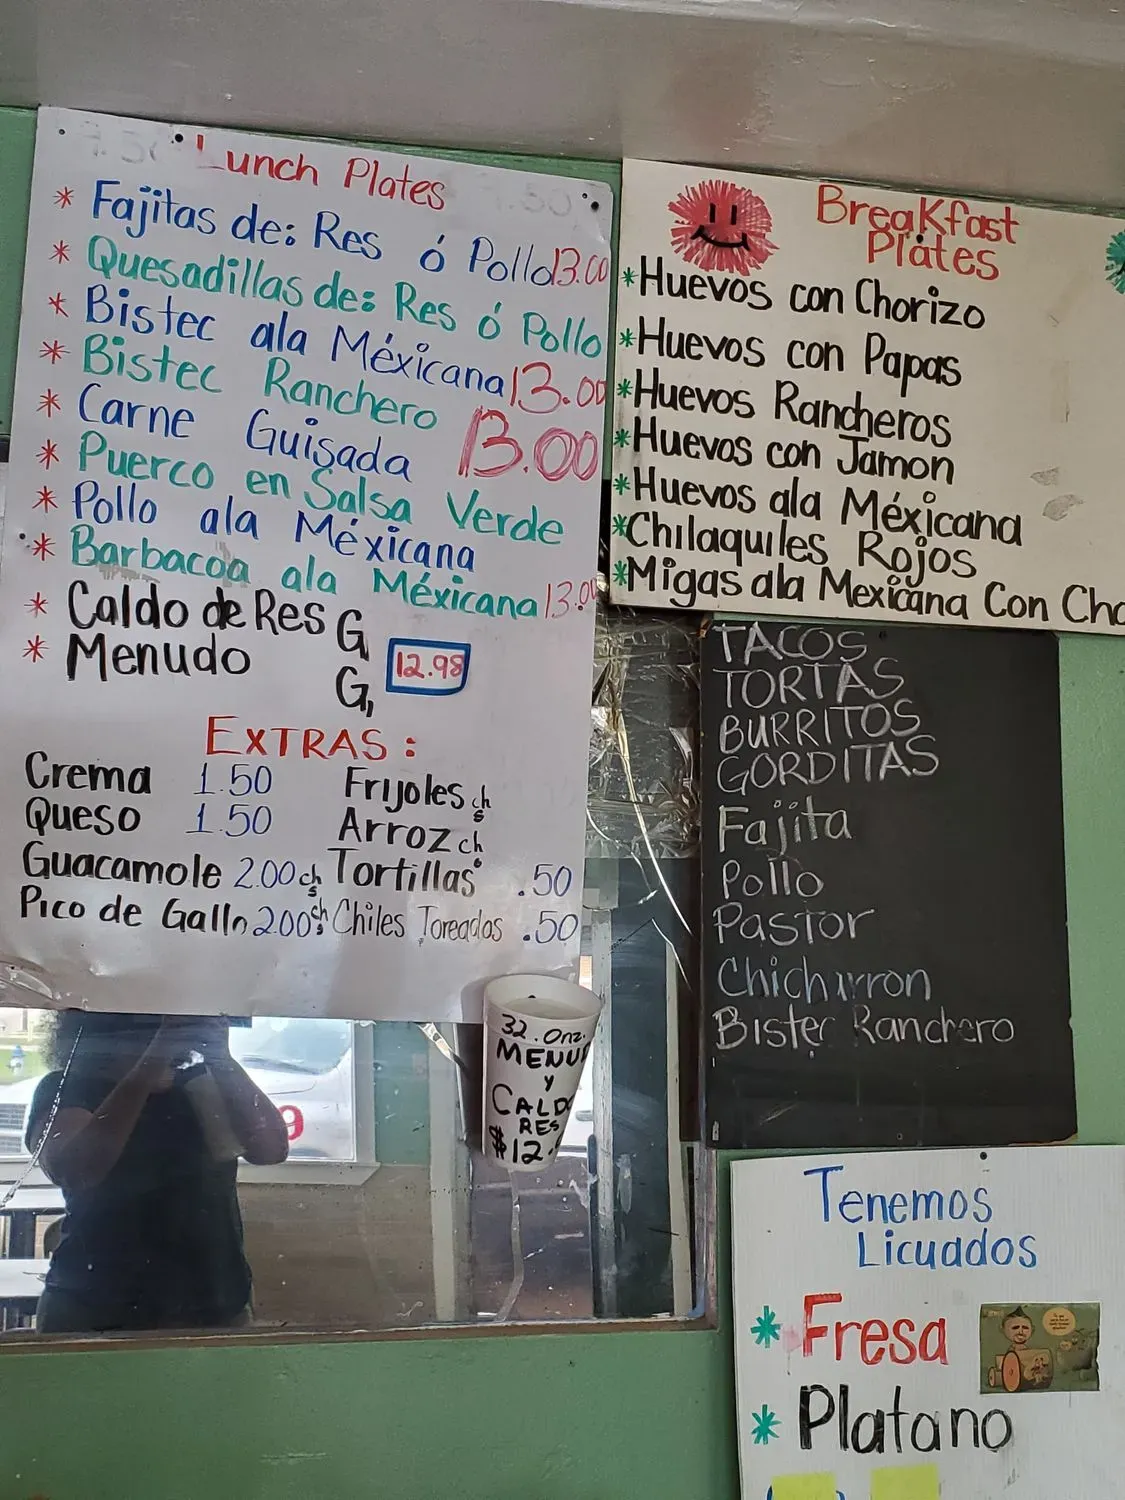 Lunch Plates
* Fajitas de: Res ó Pollo 13.00
* Quesadillas de: Res ó Pollo
* Bistec ala Méxicana 13.00
* Bistec Ranchero
* Carne Guisada 13.00
* Puerco en Salsa Verde
* Pollo ala Méxicana
* Barbacoa ala Méxicana 13.00
* Caldo de Res G,
* Menudo G, 12.98
EXTRAS:
Crema 1.50 Frijoles ch
Queso 1.50 Arroz ch
Guacamole 2.00 ch Tortillas .50
Pico de Gallo 2.00 ch Chiles Toreados .50
32. Onz.
MENU
Y
CALD
RES
$12.
BreaKfast
Plates
*Huevos con Chorizo
*Huevos con Papas
*Huevos Rancheros
*Huevos con Jamon
*Huevos ala Méxicana
*Chilaquiles Rojos
*Migas ala Mexicana Con Cho
TACOS
TORTAS
BURRITOS
GORDITAS
Fajita
Pollo
Pastor
Chicharron
Bistec Ranchero
Tenemos
Licuados
* Fresa
* Platano
9